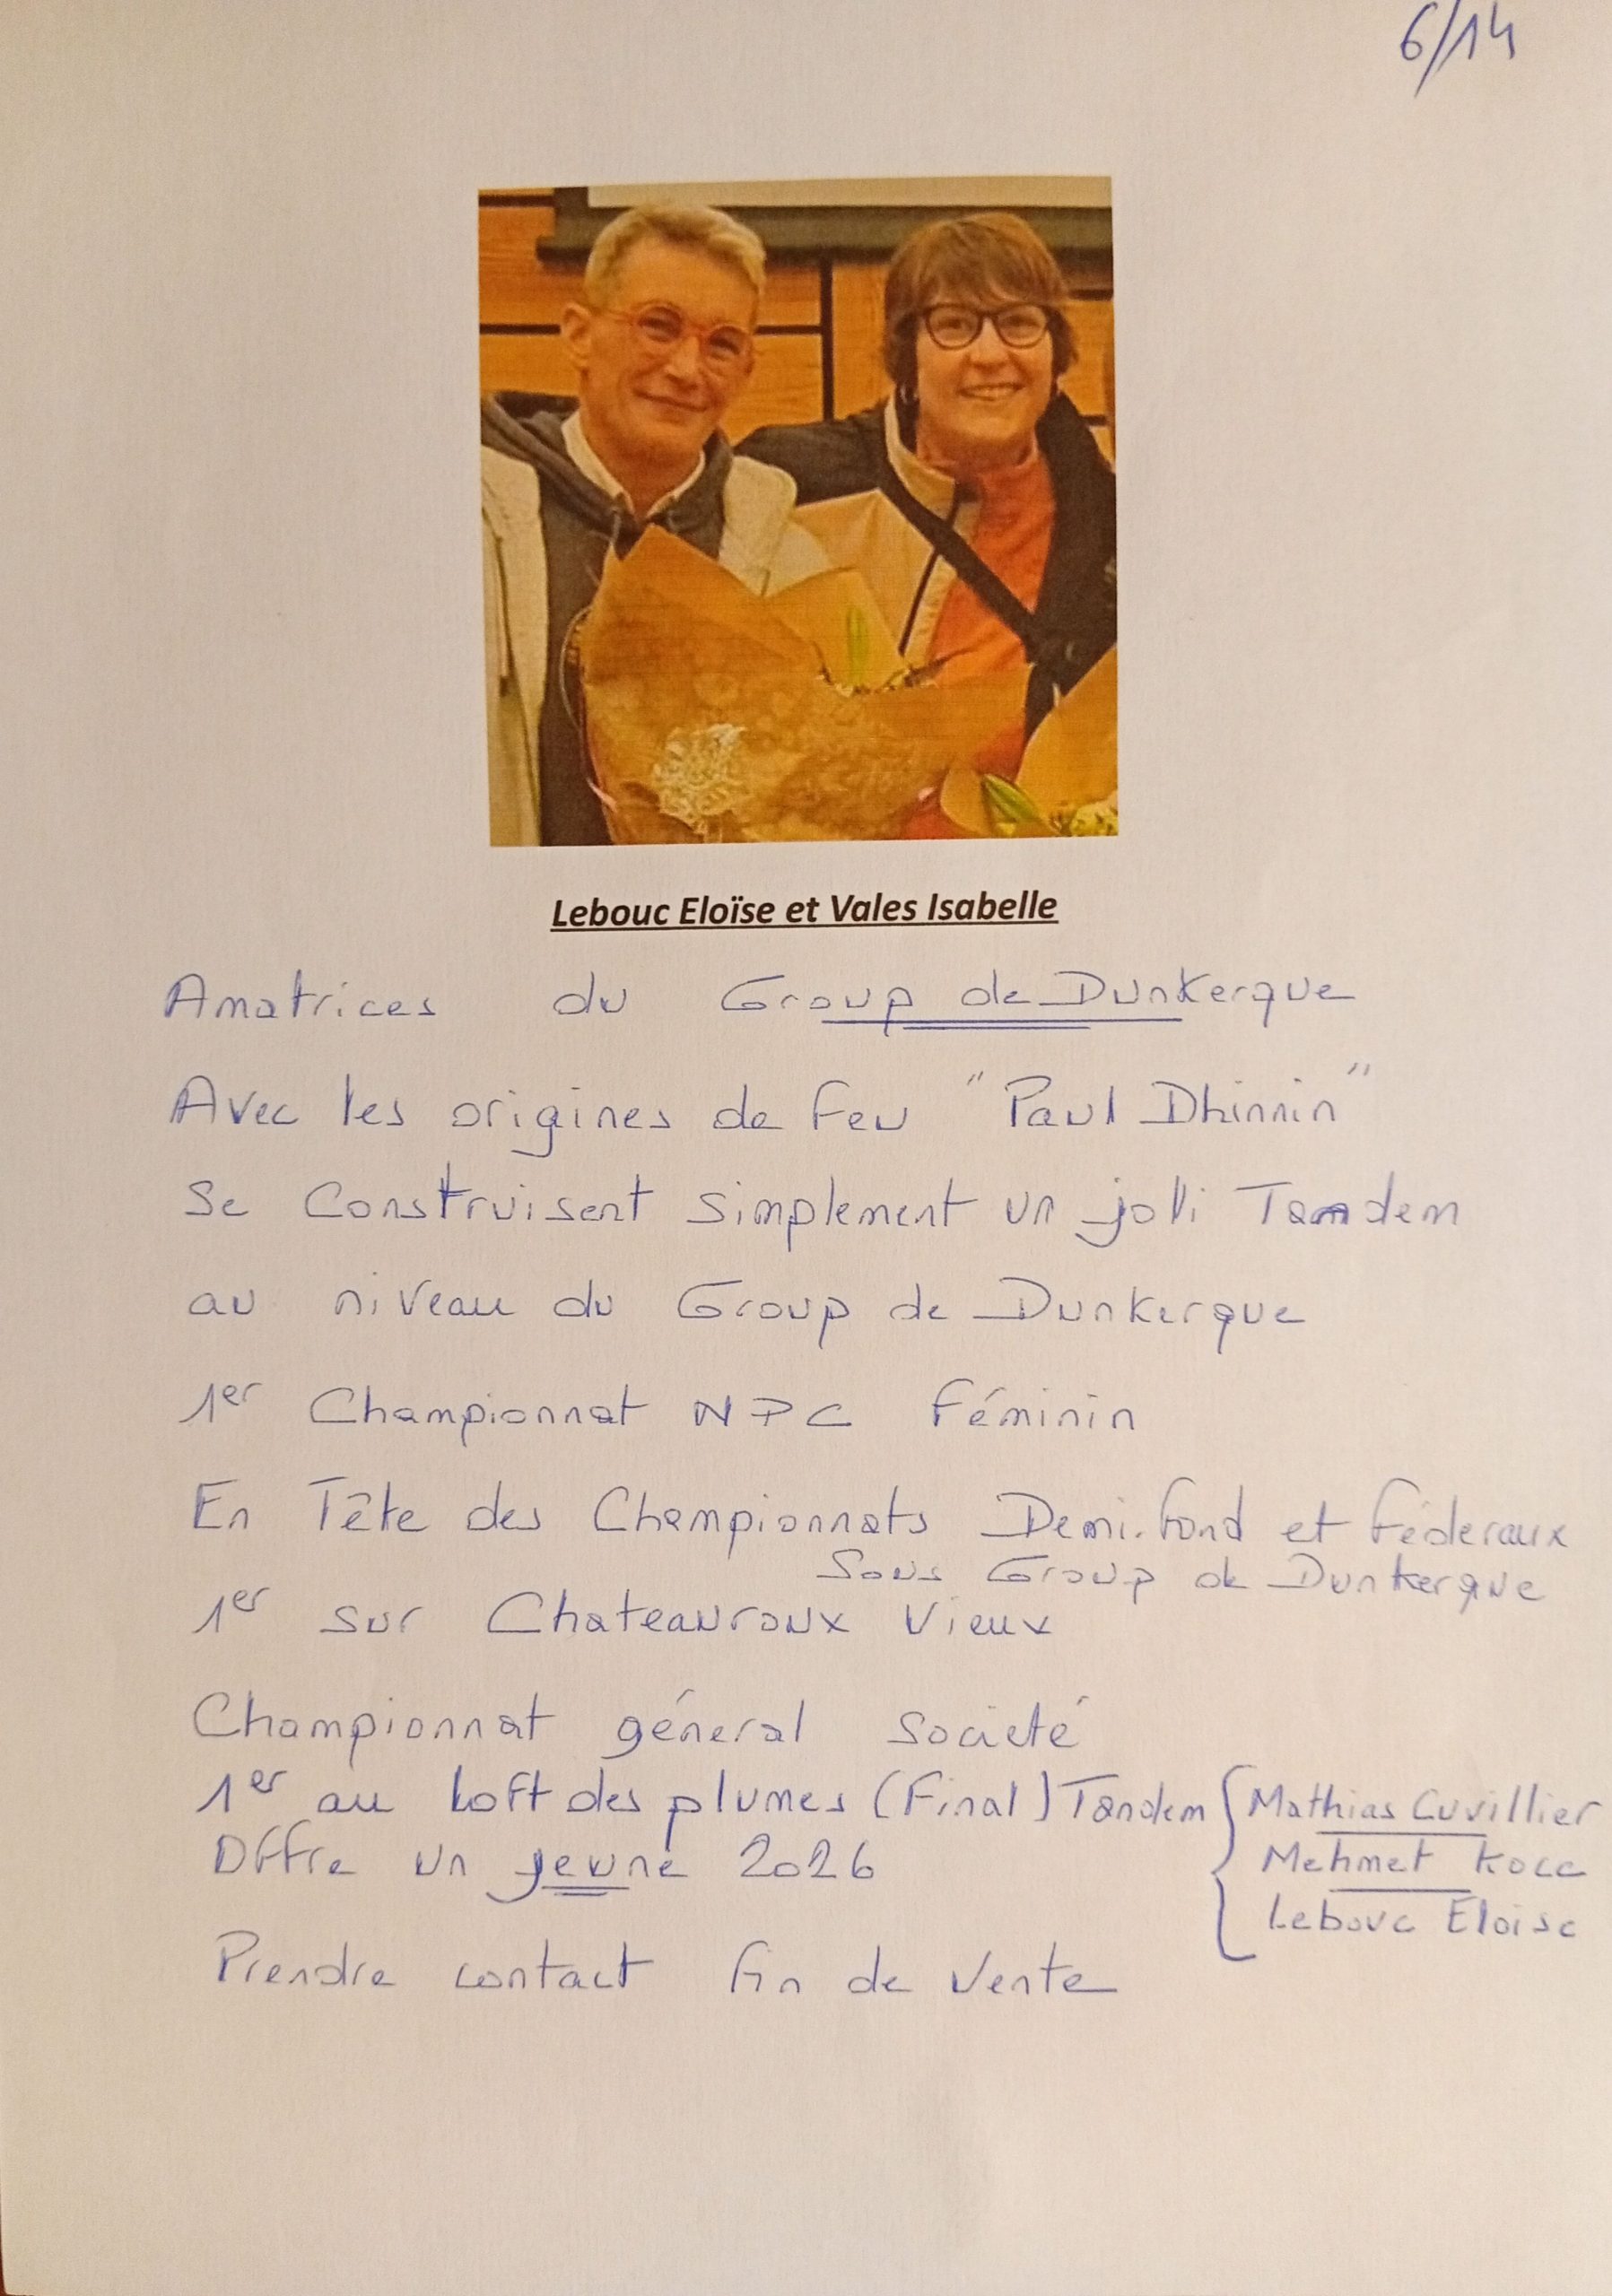 6/14
Lebouc Eloïse et Vales Isabelle
Amatrices du Group de Dunkerque
Avec les origines de feu "Paul Dhinnin"
Se Construisent simplement un joli Tandem
au niveau du Group de Dunkerque
1er Championnat NPC Féminin
En Tête des Championnats Demi-fond et Féderaux
Sous Group de Dunkerque
1er sur Chateauroux Vieux
Championnat géneral societé
1er au Loft des plumes (Final) Tandem { Mathias Cuvillier
Offre un jeune 2026 Mehmet Kocc
Lebouc Eloise
Prendre contact fin de vente